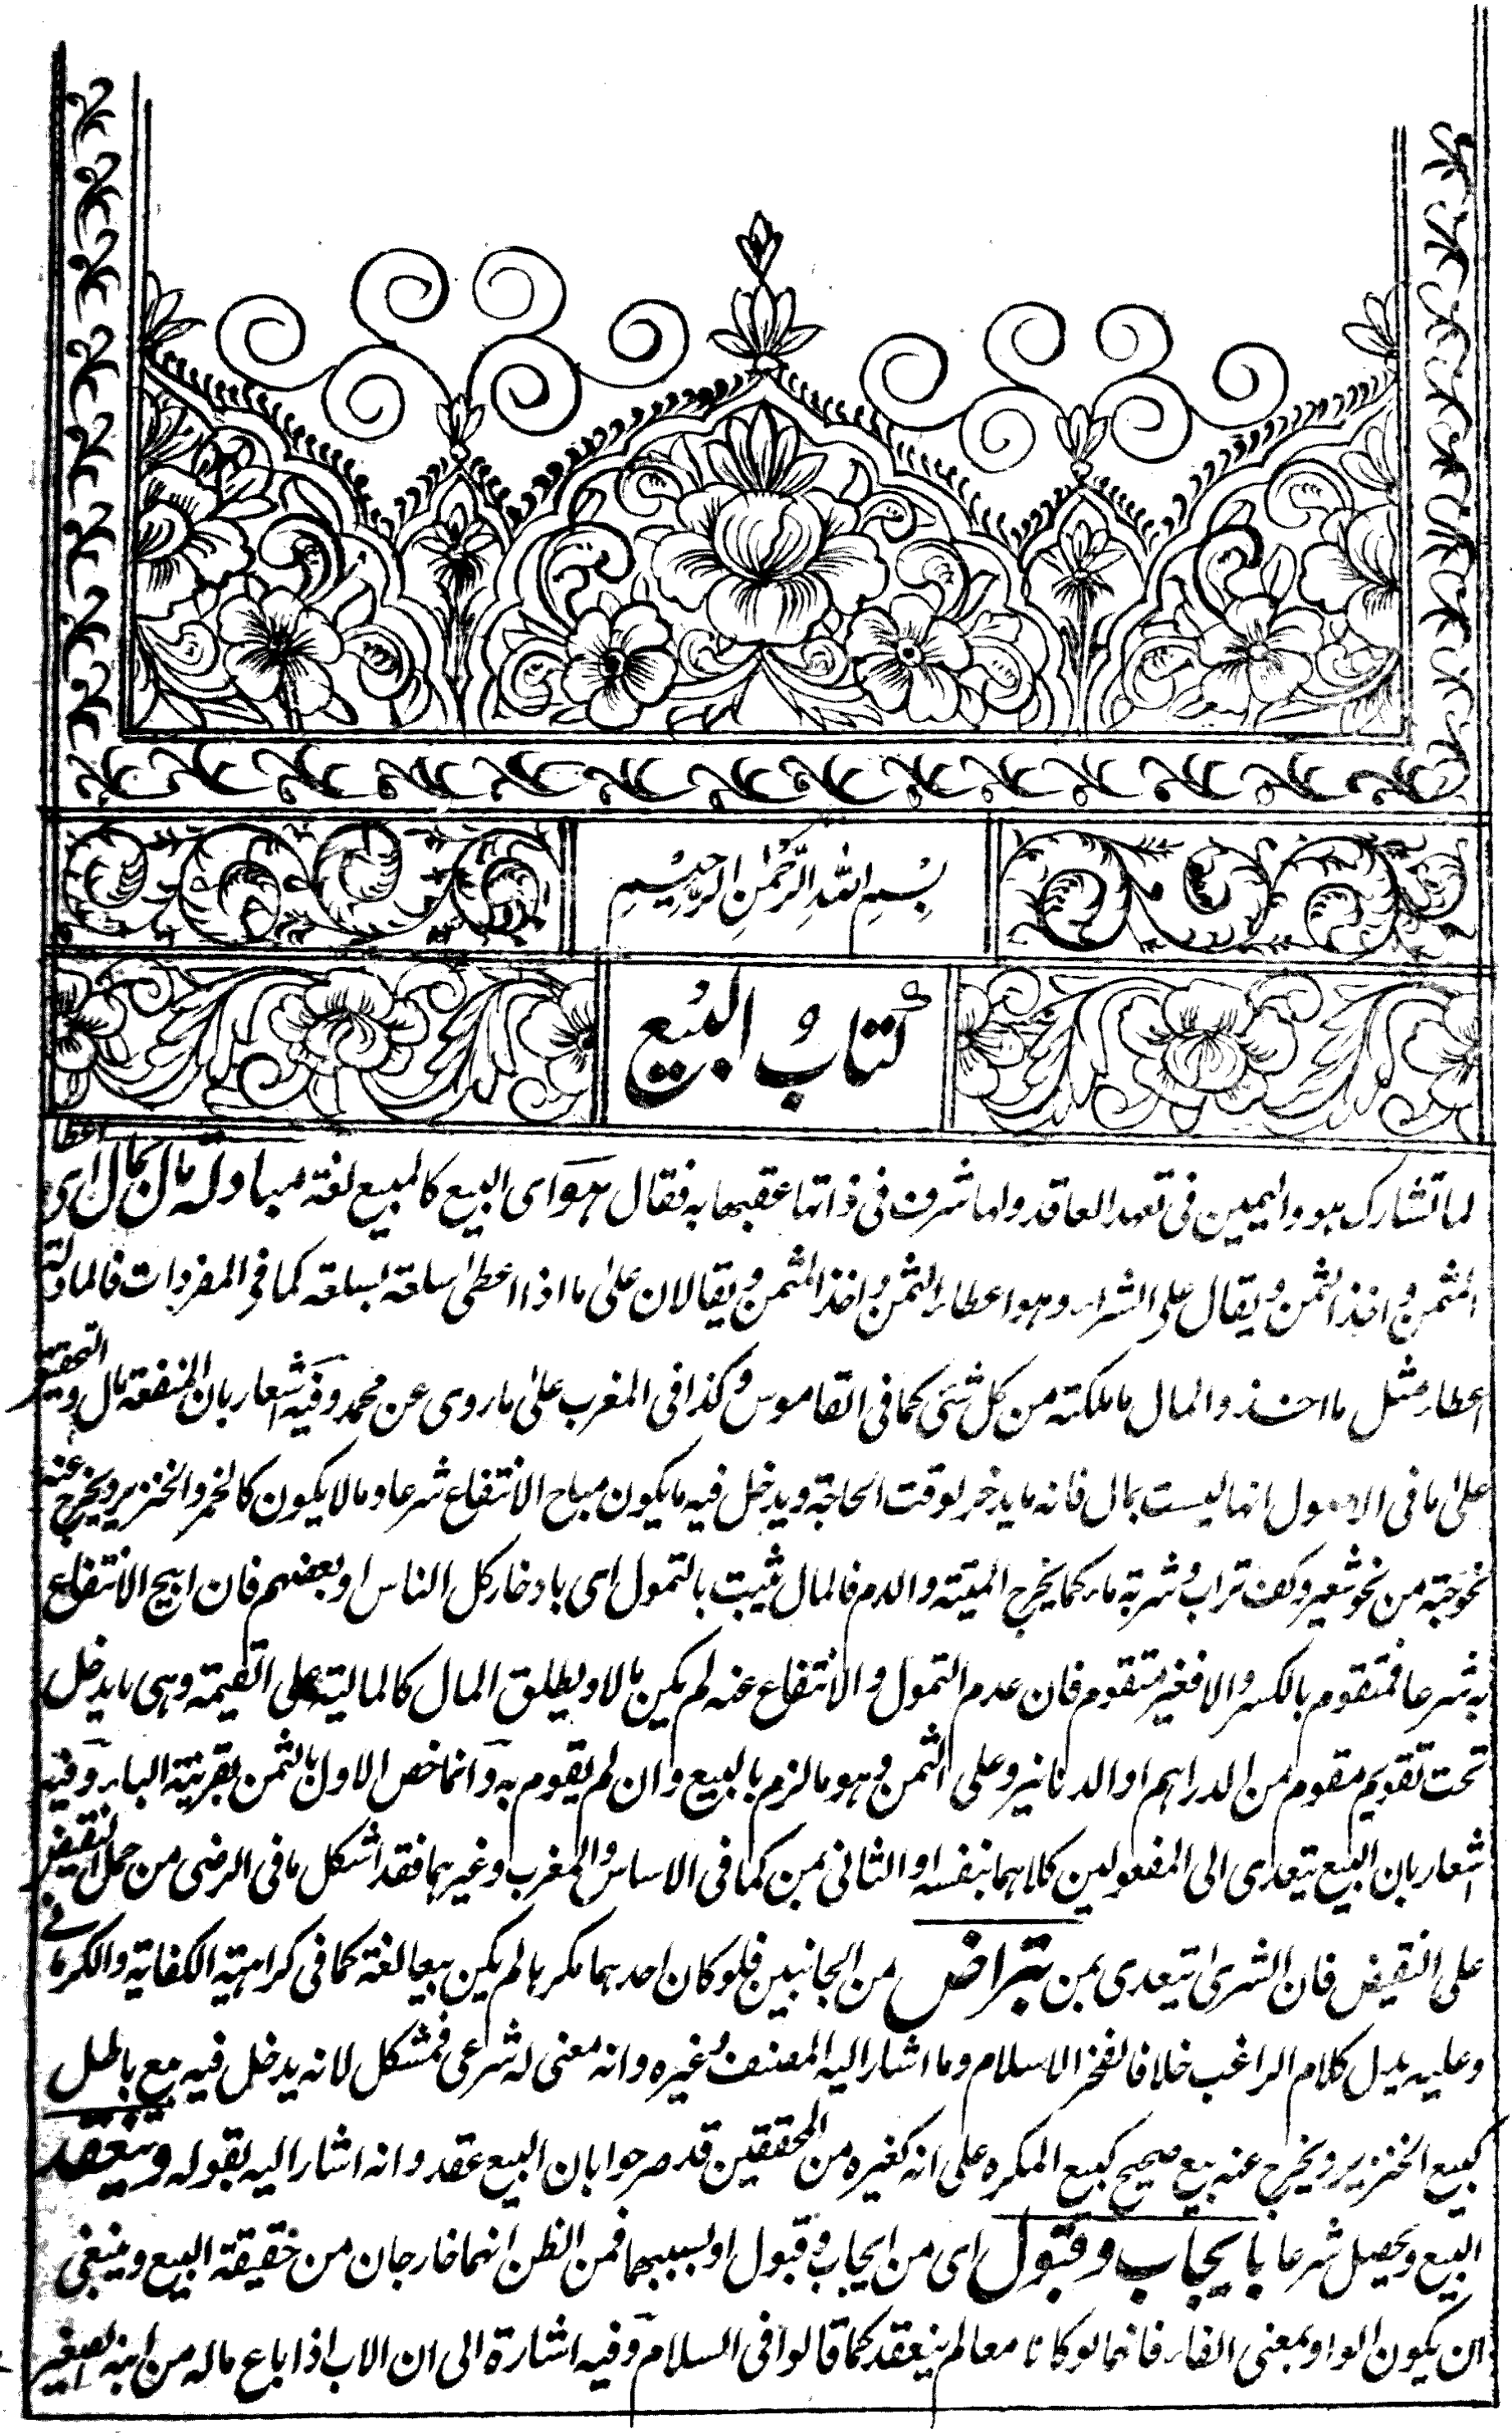 بِسْمِ اللهِ الرَّحْمٰنِ الرَّحِيْمِ
كتابُ البيع
لما تشارك هو واليمين فى تعهد العاقد ولها شرف فى ذاتها عقبها به فقال هو اى البيع كالمبيع لغة مبادلة مال بمال اى اعطاء
المثمن واخذ الثمن ويقال على الشراء وهو اعطاء الثمن واخذ المثمن ويقالان على ما اذا اعطى سلعة بسلعة كما فى المفردات فالمبادلة
اعطاء مثل ما اخذ والمال ما ملكته من كل شئ كما فى القاموس وكذا فى المغرب على ما روى عن محمد وفيه اشعار بان المنفعة مال والتحقيق
على ما فى الاصول انها ليست بمال فانه ما يدخر لوقت الحاجة ويدخل فيه ما يكون مباح الانتفاع شرعا وما لا يكون كالخمر والخنزير ويخرج عنه
نحو حبة من نحو شعير وكف تراب وشربة ماء كما يخرج الميتة والدم فالمال يثبت بالتمول اى بادخار كل الناس او بعضهم فان ابيح الانتفاع
به شرعا فمتقوم بالكسر والا فغير متقوم فان عدم التمول والانتفاع عنه لم يكن مالا ويطلق المال كالمالية على القيمة وهى ما يدخل
تحت تقويم مقوم من الدراهم او الدنانير وعلى الثمن وهو ما لزم بالبيع وان لم يقوم به وانما خص الاول بالثمن بقرينة الباء وفيه
اشعار بان البيع يتعدى الى المفعولين كلاهما بنفسه او الثانى بمن كما فى الاساس والمغرب وغيرهما فقد اشكل ما فى الرضى من حمل النقيض
على النقيض فان الشرى يتعدى بمن بتراض من الجانبين فلو كان احدهما مكرها لم يكن بيعا لغة كما فى كراهية الكفاية والكرمانى
وعليه يدل كلام الراغب خلافا لفخر الاسلام وما اشار اليه المصنف وغيره وانه معنى له شرعى فمشكل لانه يدخل فيه بيع باطل
كبيع الخنزير ويخرج عنه بيع صحيح كبيع المكره على انه كغيره من المحققين قد صرحوا بان البيع عقد وانه اشار اليه بقوله وينعقد
البيع ويحصل شرعا بايجاب وقبول اى من ايجاب وقبول او بسببهما فمن الظن انهما خارجان من حقيقة البيع وينبغى
ان يكون الواو بمعنى الفاء فانهما لو كانا معا لم ينعقد كما قالوا فى السلام وفيه اشارة الى ان الاب اذا باع ماله من ابنه الصغير